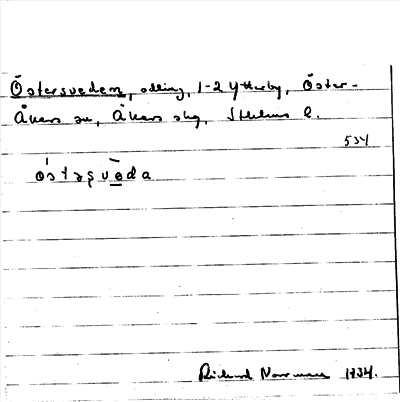 Östersvedem, odling, 1-2 Ytterby, Öster-
Åkers sn, Åkers skg, Sthlms l.
534
ö́stəʂvēda
Rickard Norrman 1934.